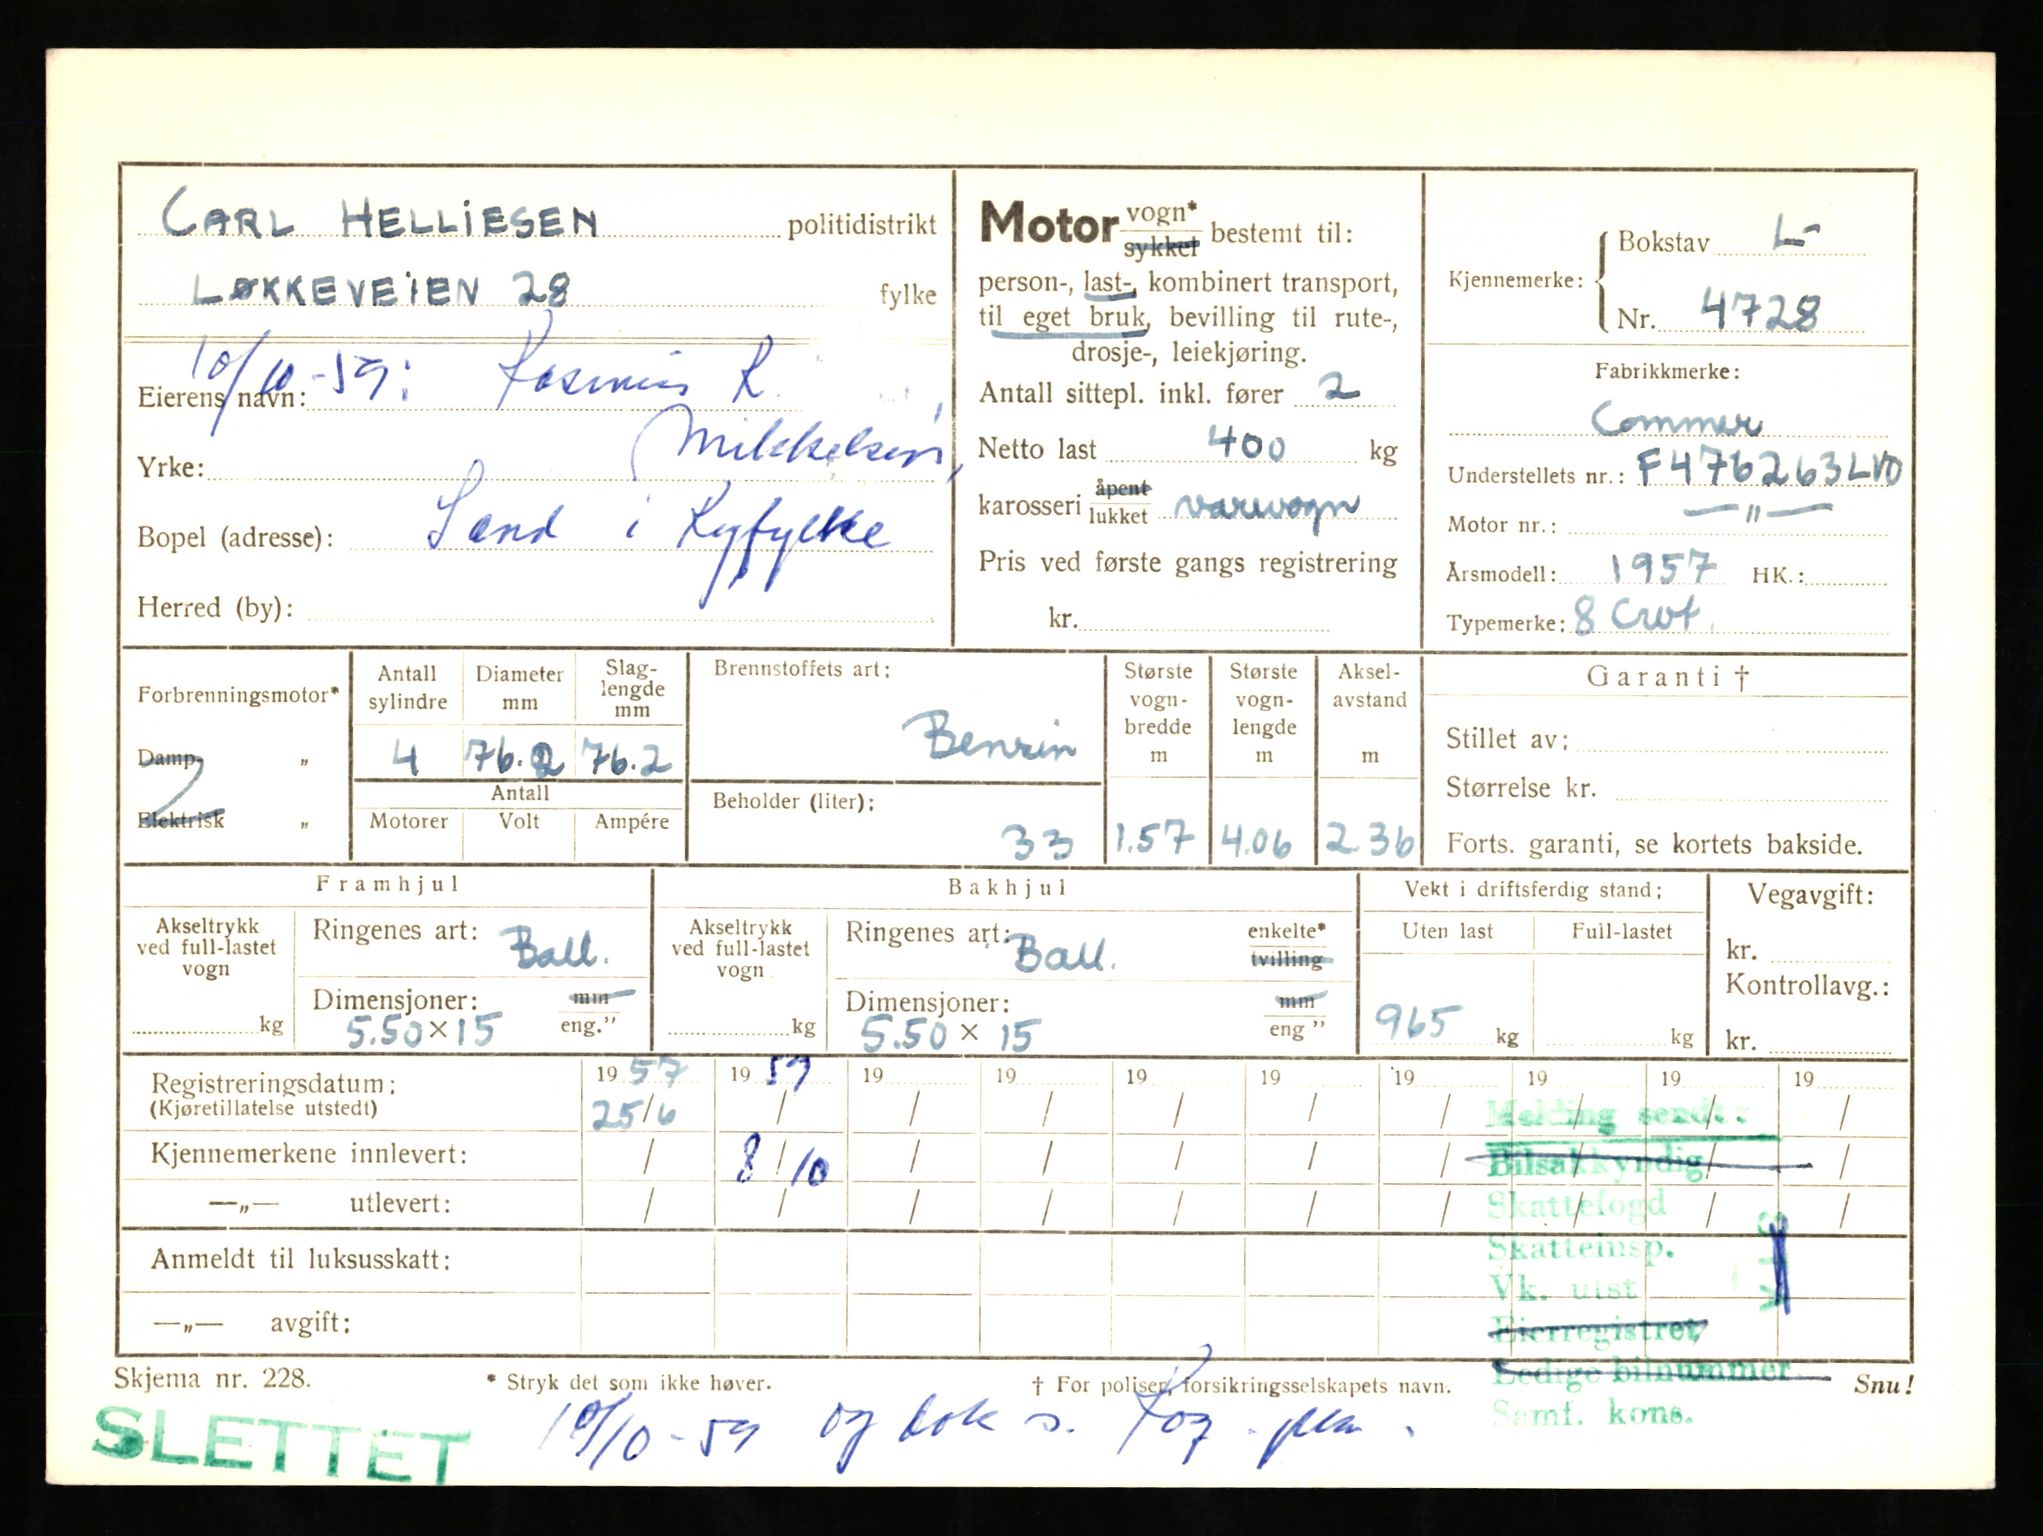 CARL HELLIESEN politidistrikt
LØKKEVEIEN 28 fylke
10/10-59: Rasmus R.
Eierens navn:
Mikkelsen,
Yrke:
Bopel (adresse): Sand i Ryfylke
Herred (by):
Motor vogn* sykkel bestemt til:
person-, last-, kombinert transport,
til eget bruk, bevilling til rute-,
drosje-, leiekjøring.
Antall sittepl. inkl. fører 2
Netto last 400 kg
karosseri åpent lukket varevogn
Pris ved første gangs registrering
kr.
Kjennemerke: Bokstav L-
Nr. 4728
Fabrikkmerke:
Commer
Understellets nr.: F476263LVO
Motor nr.: —"—
Årsmodell: 1957 HK.:
Typemerke: 8 Cwt.
Forbrenningsmotor*
Damp- „
Elektrisk „
Antall sylindre
Diameter mm
Slag-lengde mm
4 76.2 76.2
Antall
Motorer Volt Ampére
Brennstoffets art:
Benzin
Beholder (liter):
33
Største vogn-bredde m
1.57
Største vogn-lengde m
4.06
Aksel-avstand m
2.36
Garanti †
Stillet av:
Størrelse kr.
Forts. garanti, se kortets bakside.
Framhjul
Akseltrykk ved full-lastet vogn
kg
Ringenes art: Ball.
Dimensjoner: mm
5.50 × 15 eng."
Bakhjul
Akseltrykk ved full-lastet vogn
kg
Ringenes art: Ball. enkelte* tvilling
Dimensjoner: mm
5.50 × 15 eng "
Vekt i driftsferdig stand:
Uten last Full-lastet
965 kg kg
Vegavgift:
kr.
Kontrollavg.:
kr.
Registreringsdatum: 19 57 19 59 19 19 19 19 19 19 19 19
(Kjøretillatelse utstedt) 25/6 / / / / / / / / /
Kjennemerkene innlevert: / 8/10 / / / / / / / /
—„— utlevert: / / / / / / / / / /
Anmeldt til luksusskatt:
—„— avgift:
Melding sendt:
Bilsakkyndig
Skattefogd
Skatteinsp.
Vk. utst
Eierregistret,
Ledige bilnummer
Samf. kons.
Skjema nr. 228. * Stryk det som ikke høver. † For poliser, forsikringsselskapets navn. Snu!
SLETTET
10/10-59 og bok s. Rog.